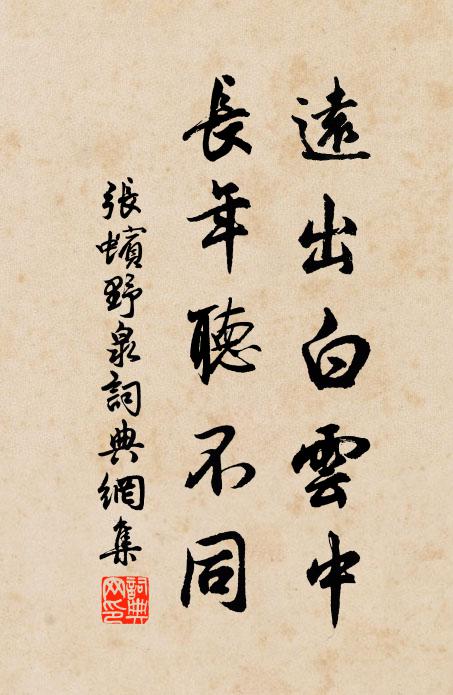 遠出白雲中
長年聽不同
張蠙野泉詞典網集
詞典網印